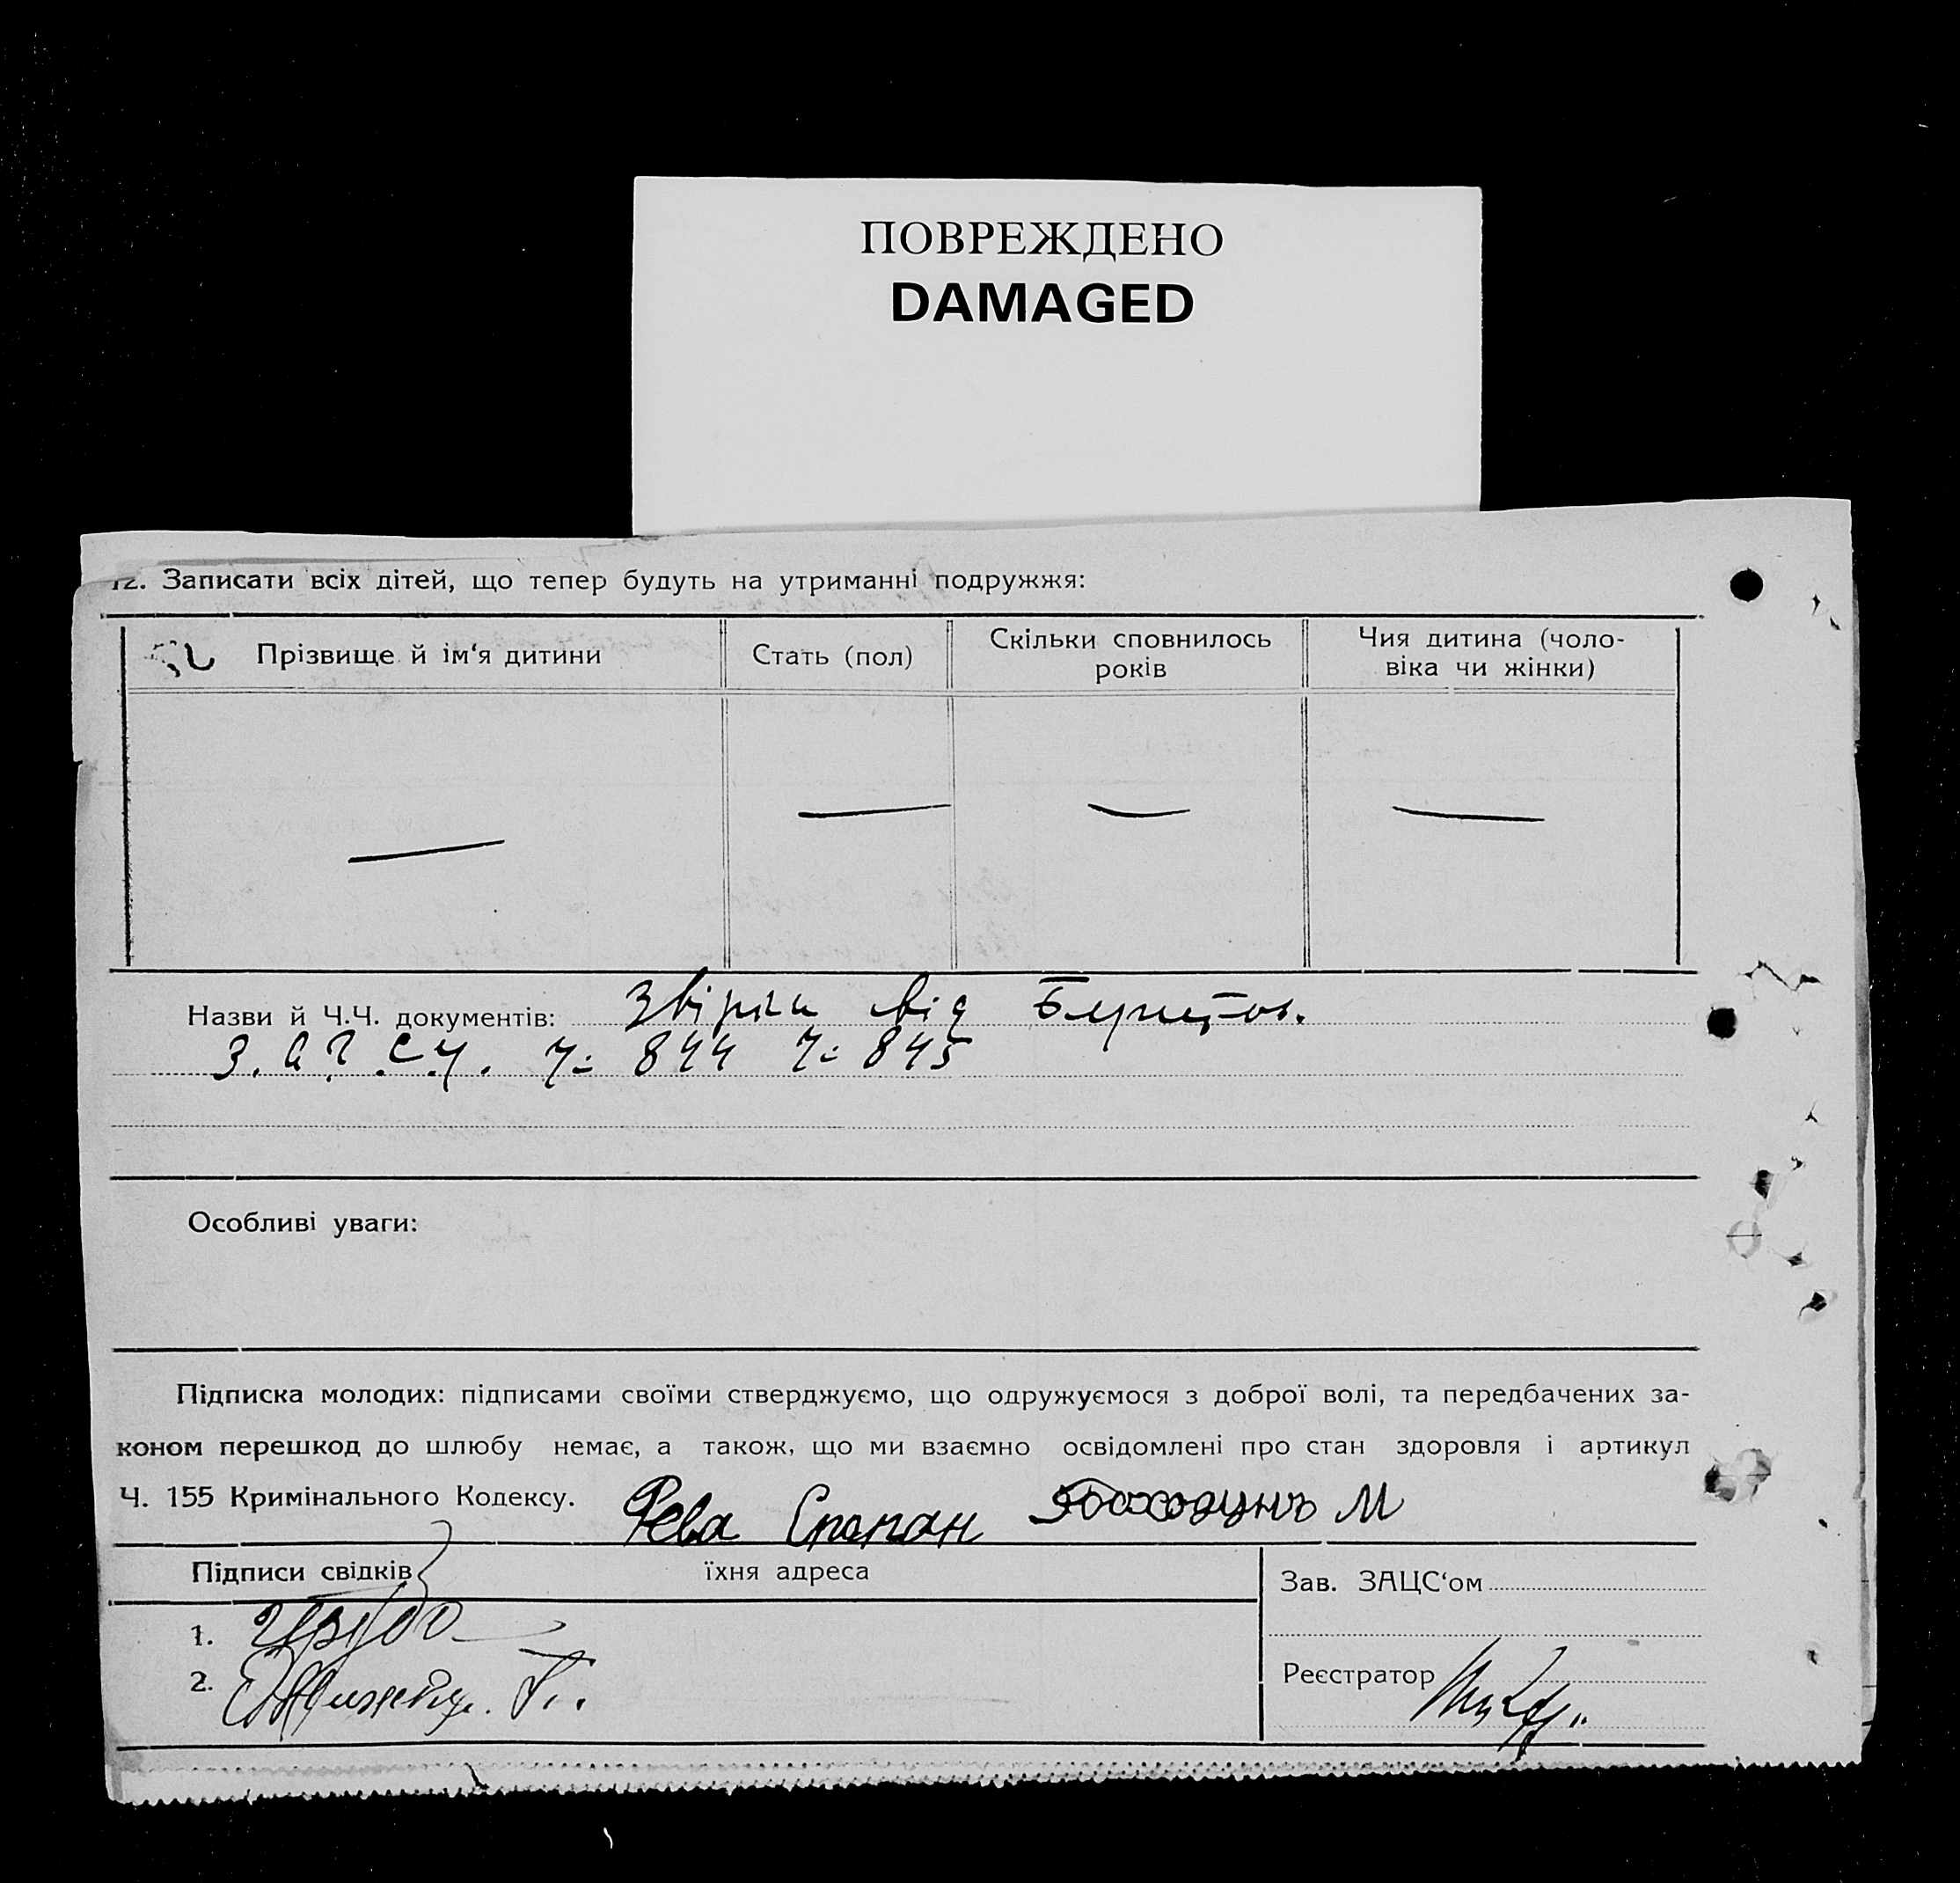 ПОВРЕЖДЕНО
DAMAGED
12. Записати всіх дітей, що тепер будуть на утриманні подружжя:
Прізвище й ім‘я дитини
Стать (пол)
Скільки сповнилось років
Чия дитина (чоло-
віка чи жінки)
Назви й Ч.Ч. документів: від
844 845
Особливі уваги:
Підписка молодих: підписами своїми стверджуємо, що одружуємося з доброї волі, та передбачених за-
коном перешкод до шлюбу немає, а також, що ми взаємно освідомлені про стан здоровля і артикул
Ч. 155 Кримінального Кодексу. Рева Степан М
Підписи свідків їхня адреса
Зав. ЗАЦС‘ом
1.
2.
Реєстратор